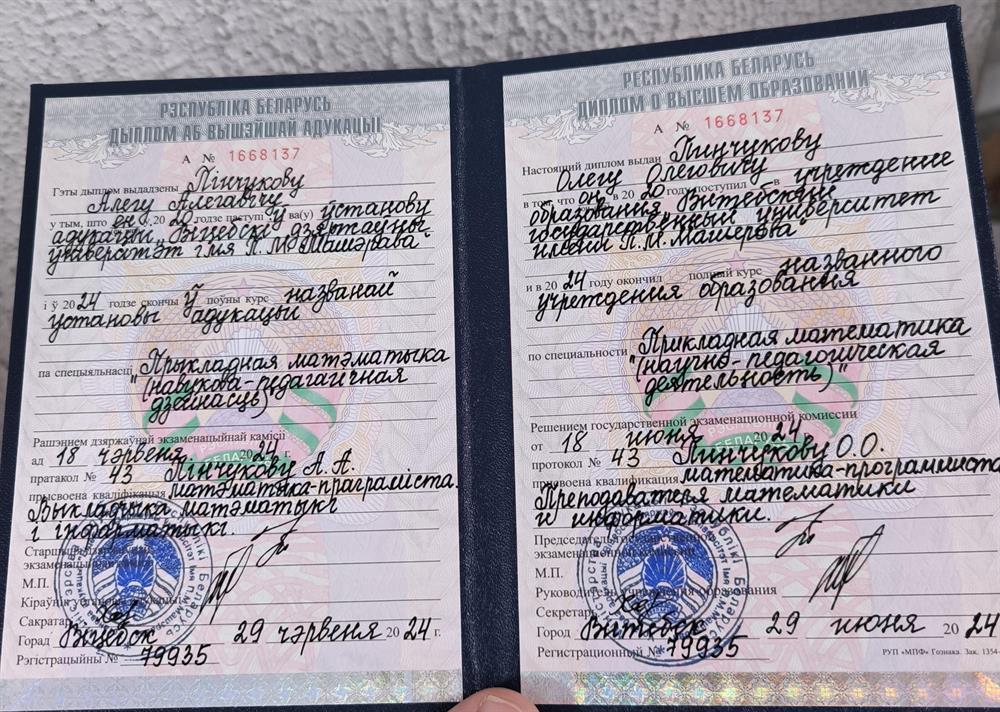 РЭСПУБЛІКА БЕЛАРУСЬ
ДЫПЛОМ АБ ВЫШЭЙШАЙ АДУКАЦЫІ
А № 1668137
Гэты дыплом выдадзены Пінчукову
Алегу Алегавічу
у тым, што ён у 2020 годзе паступіў у ва(у) ўстанову
адукацыі "Віцебскі дзяржаўны
ўніверсітэт імя П.М. Машэрава"
і ў 2024 годзе скончыў поўны курс названай
установы адукацыі
па спецыяльнасці "Прыкладная матэматыка
(навукова-педагагічная
дзейнасць)"
Рашэннем дзяржаўнай экзаменацыйнай камісіі
ад 18 чэрвеня 2024 г.
пратакол № 43 Пінчукову А. А.
прысвоена кваліфікацыя матэматыка-праграміста.
Выкладчыка матэматыкі
і інфарматыкі.
Старшыня дзяржаўнай
экзаменацыйнай камісіі
М.П.
Кіраўнік установы адукацыі
Сакратар
Горад Віцебск 29 чэрвеня 2024 г.
Рэгістрацыйны № 79935
РЕСПУБЛИКА БЕЛАРУСЬ
ДИПЛОМ О ВЫСШЕМ ОБРАЗОВАНИИ
А № 1668137
Настоящий диплом выдан Пинчукову
Олегу Олеговичу
в том, что он в 2020 году поступил в учреждение
образования "Витебский
государственный университет
имени П.М. Машерова"
и в 2024 году окончил полный курс названного
учреждения образования
по специальности "Прикладная математика
(научно-педагогическая
деятельность)"
Решением государственной экзаменационной комиссии
от 18 июня 2024
протокол № 43 Пинчукову О.О.
присвоена квалификация математика-программиста.
Преподавателя математики
и информатики.
Председатель государственной
экзаменационной комиссии
М.П.
Руководитель учреждения образования
Секретарь
Город Витебск 29 июня 2024
Регистрационный № 79935
РУП «МПФ» Гознака. Зак. 1354-